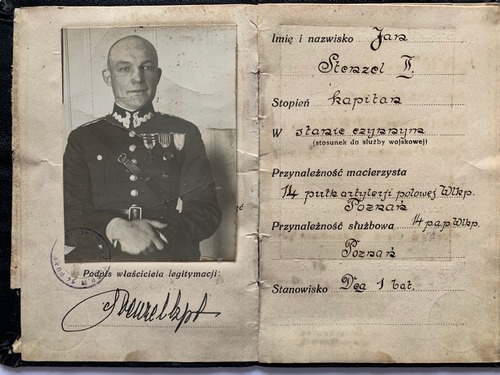 Podpis właściciela legitymacji:
Imię i nazwisko Jan
Stenzel I.
Stopień kapitan
W stanie czynnym
(stosunek do służby wojskowej)
Przynależność macierzysta
14 pułk artylerji polowej Wlkp.
Poznań
Przynależność służbowa 14 p.a.p. Wlkp.
Poznań
Stanowisko Dca 1 bat.